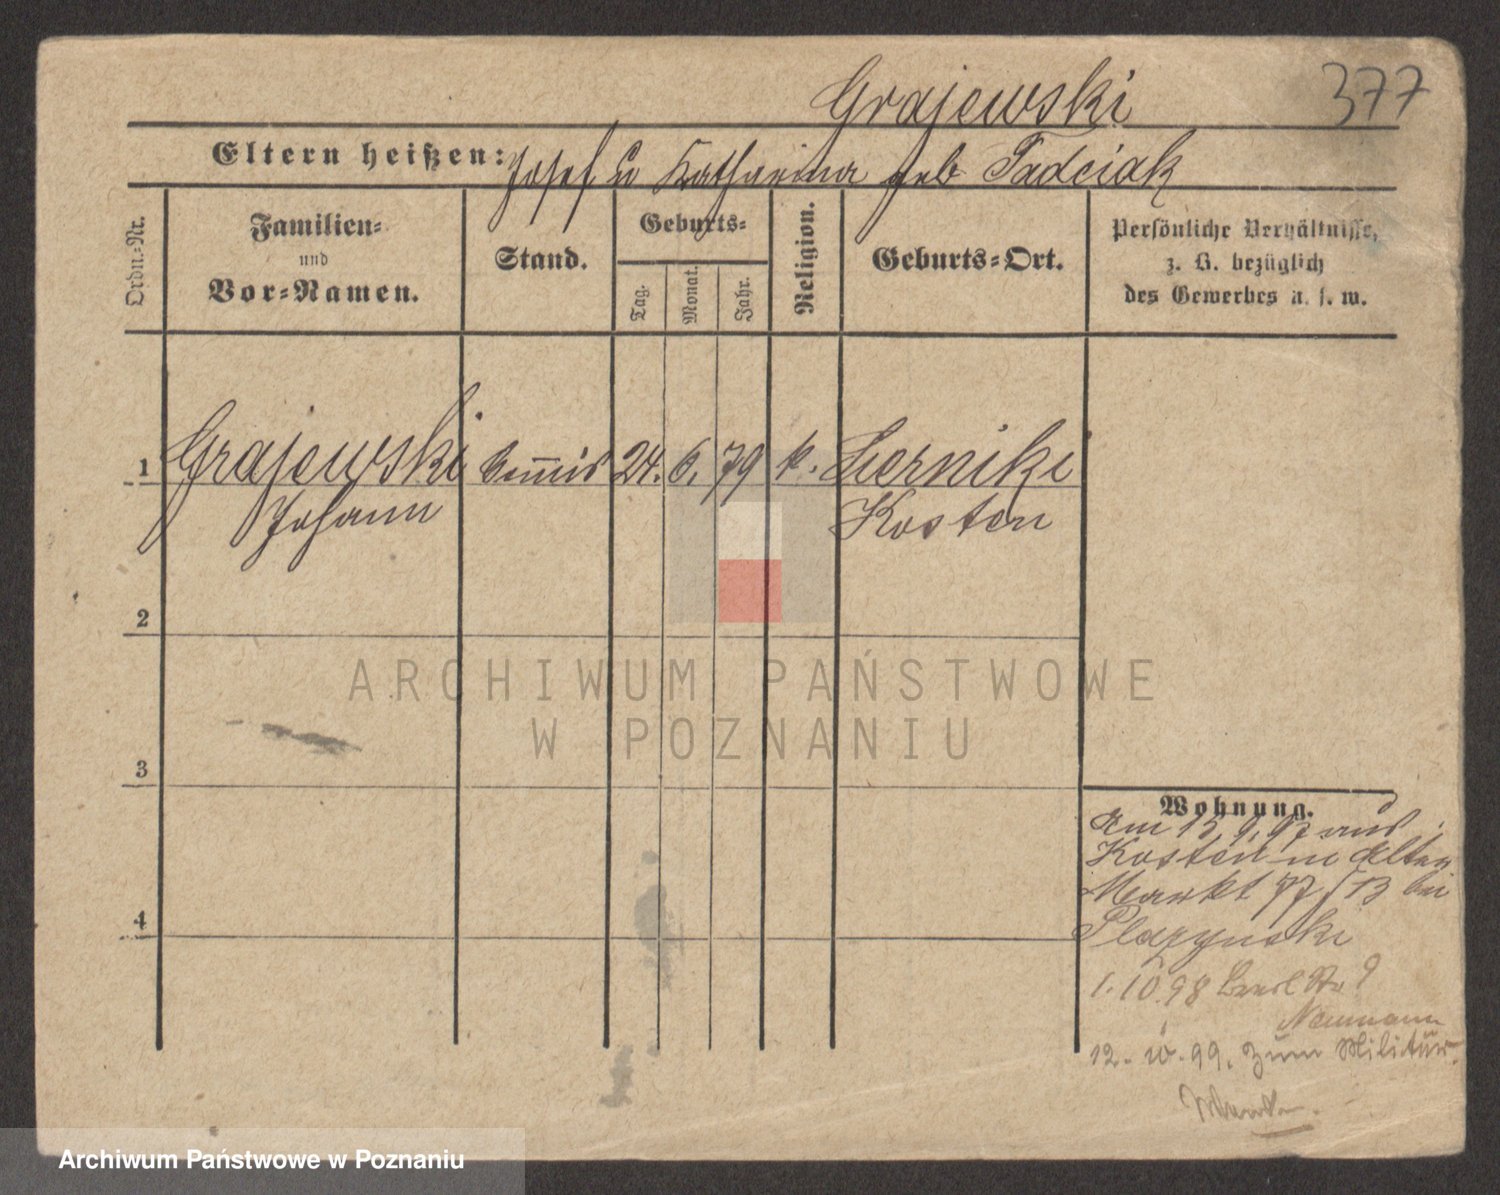 Grajewski
377
Eltern heißen: Josef u Katharina geb Tadeiak
Ordn.-Nr.
Familien-
und
Vor-Namen.
Stand.
Geburts-
Tag.
Monat.
Jahr.
Religion.
Geburts-Ort.
Persönliche Verhältnisse,
z. B. bezüglich
des Gewerbes u. s. w.
1 Grajewski Com̅is 24. 6. 79 k. Czernike
Johann Kosten
2
3
4
Wohnung.
Am 15.9.97 aus
Kosten n Alten
Markt 77/13 bei
Plazynski
1.10.98 Bresl Str 9
Neumann
12.10.99. zum Militär.
ARCHIWUM PAŃSTWOWE
W POZNANIU
Archiwum Państwowe w Poznaniu